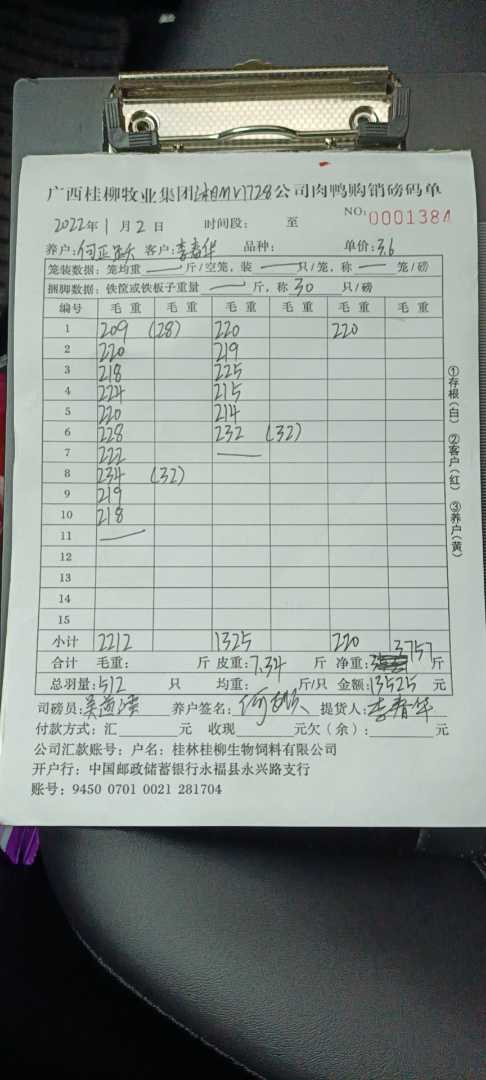 广西桂柳牧业集团 公司肉鸭购销磅码单
2022年1月2日 时间段： 至 NO: 0001384
养户:何正跃 客户:李春华 品种: 单价:3.6
笼装数据：笼均重 — 斤/空笼，装 — 只/笼，称 — 笼/磅
捆脚数据：铁筐或铁板子重量 — 斤，称 30 只/磅
编号 毛重 毛重 毛重 毛重 毛重 毛重
1 209 (28) 220 220
2 220 219
3 218 225
4 224 215
5 220 214
6 228 232 (32)
7 222 —
8 234 (32)
9 219
10 218
11 —
12
13
14
15
小计 2212 1325 220 3757
合计 毛重: 斤 皮重:7.34 斤 净重: 斤
总羽量:512 只 均重: 斤/只 金额:13525 元
司磅员: 养户签名: 提货人:李春华
付款方式：汇 元 收现 元欠（余）: 元
公司汇款账号：户名：桂林桂柳生物饲料有限公司
开户行：中国邮政储蓄银行永福县永兴路支行
账号：9450 0701 0021 281704
①存根(白) ②客户(红) ③养户(黄)